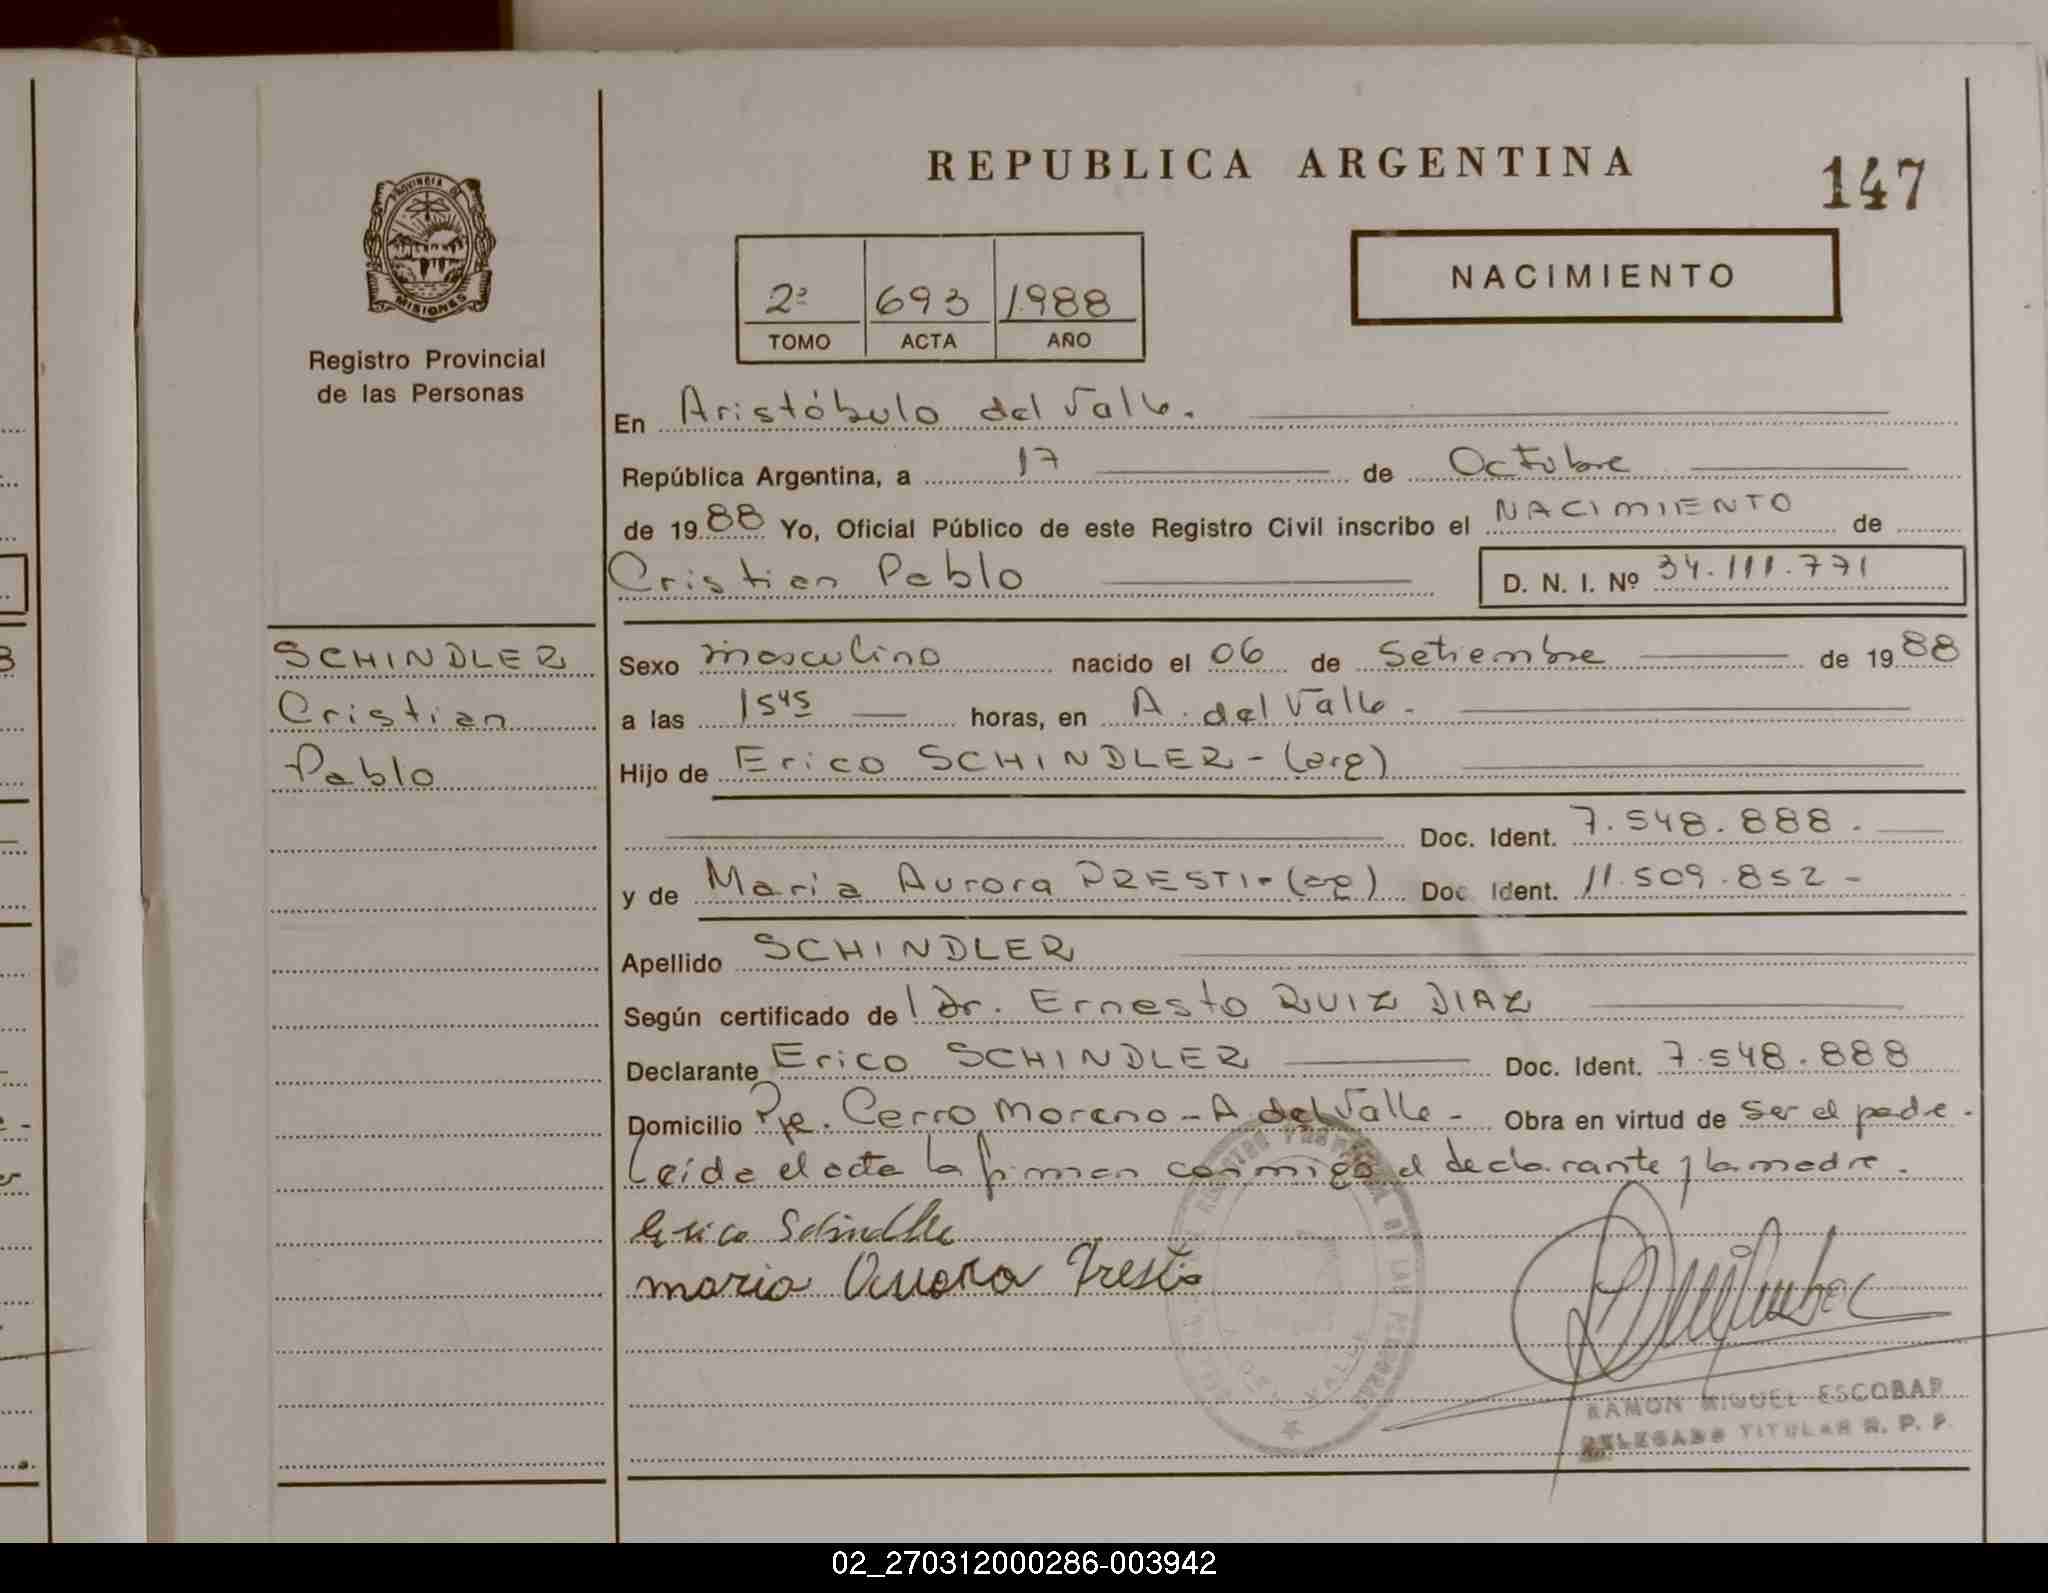 REPUBLICA ARGENTINA
147
PROVINCIA DE
MISIONES
Registro Provincial
de las Personas
2º 693 1988
TOMO ACTA AÑO
NACIMIENTO
En Aristóbulo del Valle.
República Argentina, a 17 de Octubre
de 1988 Yo, Oficial Público de este Registro Civil inscribo el NACIMIENTO de
Cristian Pablo D. N. I. Nº 34.111.771
SCHINDLER
Cristian
Pablo
Sexo masculino nacido el 06 de Setiembre de 1988
a las 15 45 horas, en A. del Valle.
Hijo de Erico SCHINDLER - (arg)
Doc. Ident. 7.548.888.
y de Maria Aurora PRESTI - (ag) Doc. Ident. 11.509.852 -
Apellido SCHINDLER
Según certificado del Dr. Ernesto RUIZ DIAZ
Declarante Erico SCHINDLER Doc. Ident. 7.548.888
Domicilio Pje. Cerro Moreno - A. del Valle - Obra en virtud de ser el padre.
Leída el acta la firman conmigo el declarante y la madre.
Erico Schindler
maria Aurora Presti
DEL VALLE
RAMON MIGUEL ESCOBAR
DELEGADO TITULAR R. P. P.
02_270312000286-003942